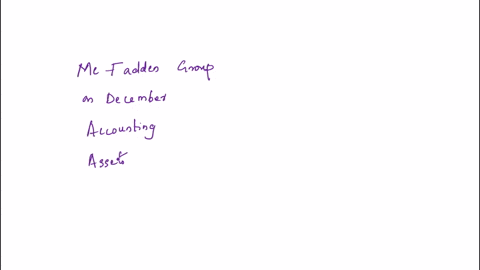 Mc Fadden Group
on December
Accounting
Assets